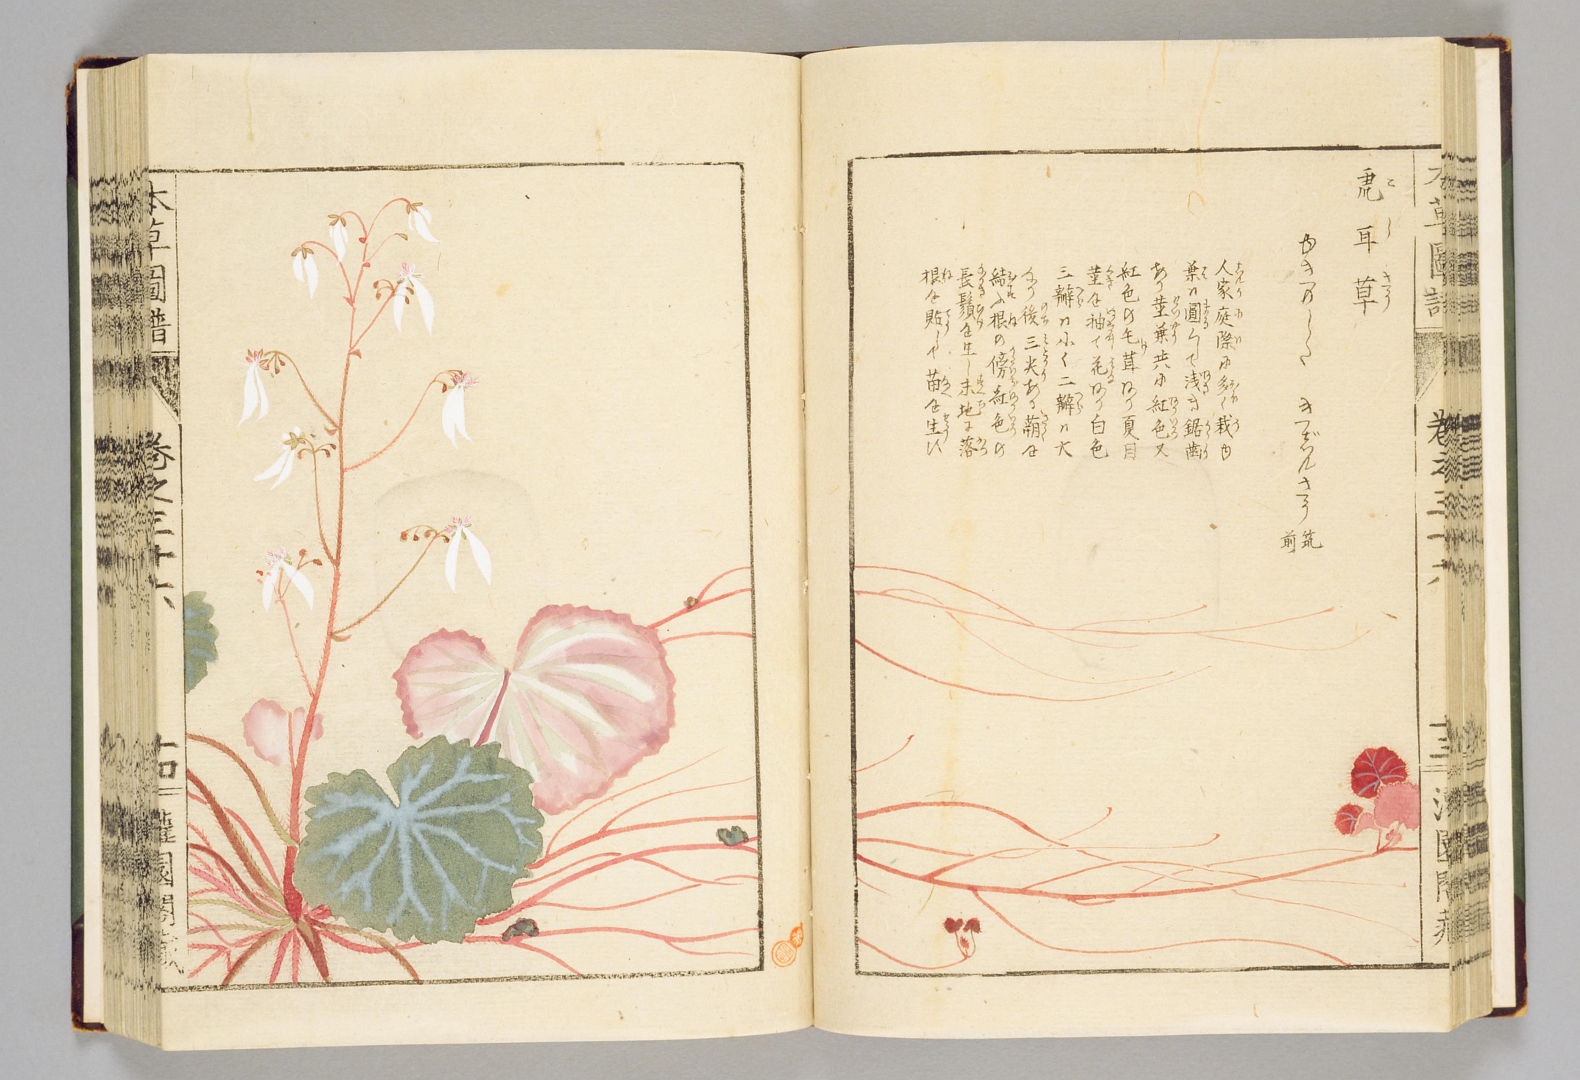 本草圖譜 巻之三十六 十三 灌園閣藏
虎耳草
こじさう
ゆきのした きじんさう 筑前
人家庭際に多く栽ゆ
葉ハ圓くして浅き鋸齒
あり茎葉共に紅色又
紅色の毛茸あり夏月
莖を抽て花あり白色
三瓣ハ小く二瓣ハ大
なり後三尖ある蒴を
結ふ根の傍紅色の
長鬚を生し末地に落
根を貼して苗を生ひ
本草圖譜 巻之三十六 十四 灌園閣藏